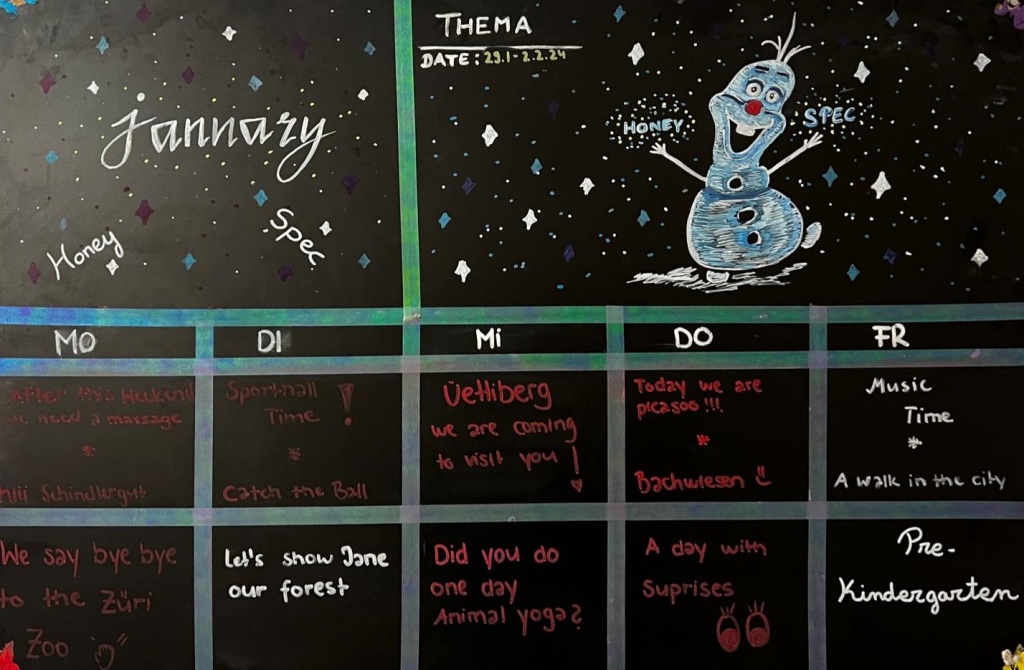 January
Honey
Spec
THEMA
DATE: 29.1-2.2.24
HONEY
SPEC
MO
DI
Mi
DO
FR
After this Weekend
we need a massage
*
hiii Schindlergut
Sporthall
Time !
*
Catch the Ball
Üetliberg
we are coming
to visit you !
Today we are
picasoo !!!
*
Bachwiesen
Music
Time
*
A walk in the city
We say bye bye
to the Züri
Zoo
Let's show Jane
our forest
Did you do
one day
Animal yoga?
A day with
Suprises
Pre-
Kindergarten